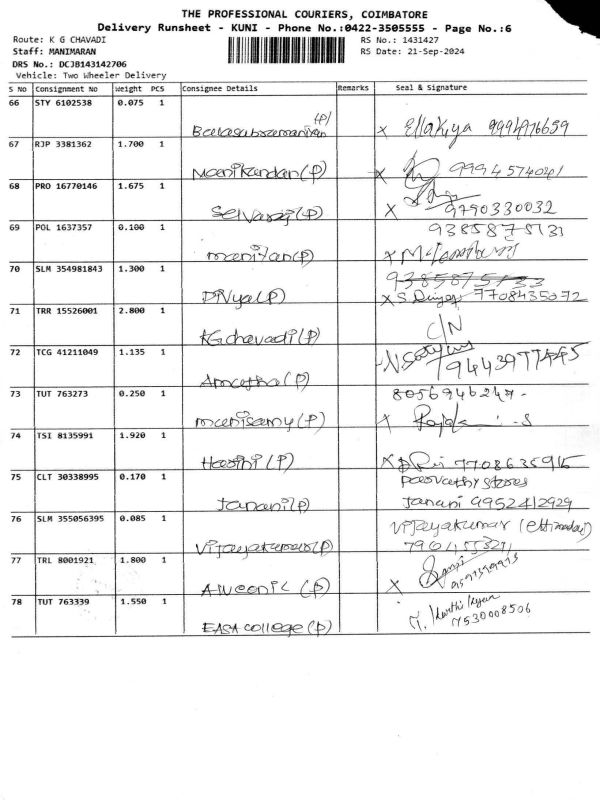 THE PROFESSIONAL COURIERS, COIMBATORE
Delivery Runsheet - KUNI - Phone No.:0422-3505555 - Page No.:6
Route: K G CHAVADI
RS No.: 1431427
Staff: MANIMARAN
RS Date: 21-Sep-2024
DRS No.: DCJB143142706
Vehicle: Two Wheeler Delivery
S No Consignment No Weight PCS Consignee Details Remarks Seal & Signature
66 STY 6102538 0.075 1
(P)
Balasubramaniyan x Ellakiya 9994976659
67 RJP 3381362 1.700 1
Manikandan (P) x 9994574041
68 PRO 16770146 1.675 1
Selvaraj (P) x 9790330032
69 POL 1637357 0.100 1 9385875133
manilan (P) x
70 SLM 354981843 1.300 1 9385875133
Divya (P) x S. 7708435072
71 TRR 15526001 2.800 1
KG chavadi (P) C/N
72 TCG 41211049 1.135 1
Amcetha (P) 7944397
73 TUT 763273 0.250 1 805694624
manisamy (P) x
74 TSI 8135991 1.920 1
Harini (P) x 7708635915
75 CLT 30338995 0.170 1 parvathi stores
Janani (P) Janani 9952412929
76 SLM 355056395 0.085 1 Vijayakumar (ettimadai)
Vijayakumar (P)
77 TRL 8001921 1.800 1
(P) x
78 TUT 763339 1.550 1
EASA college (P) 7530008506